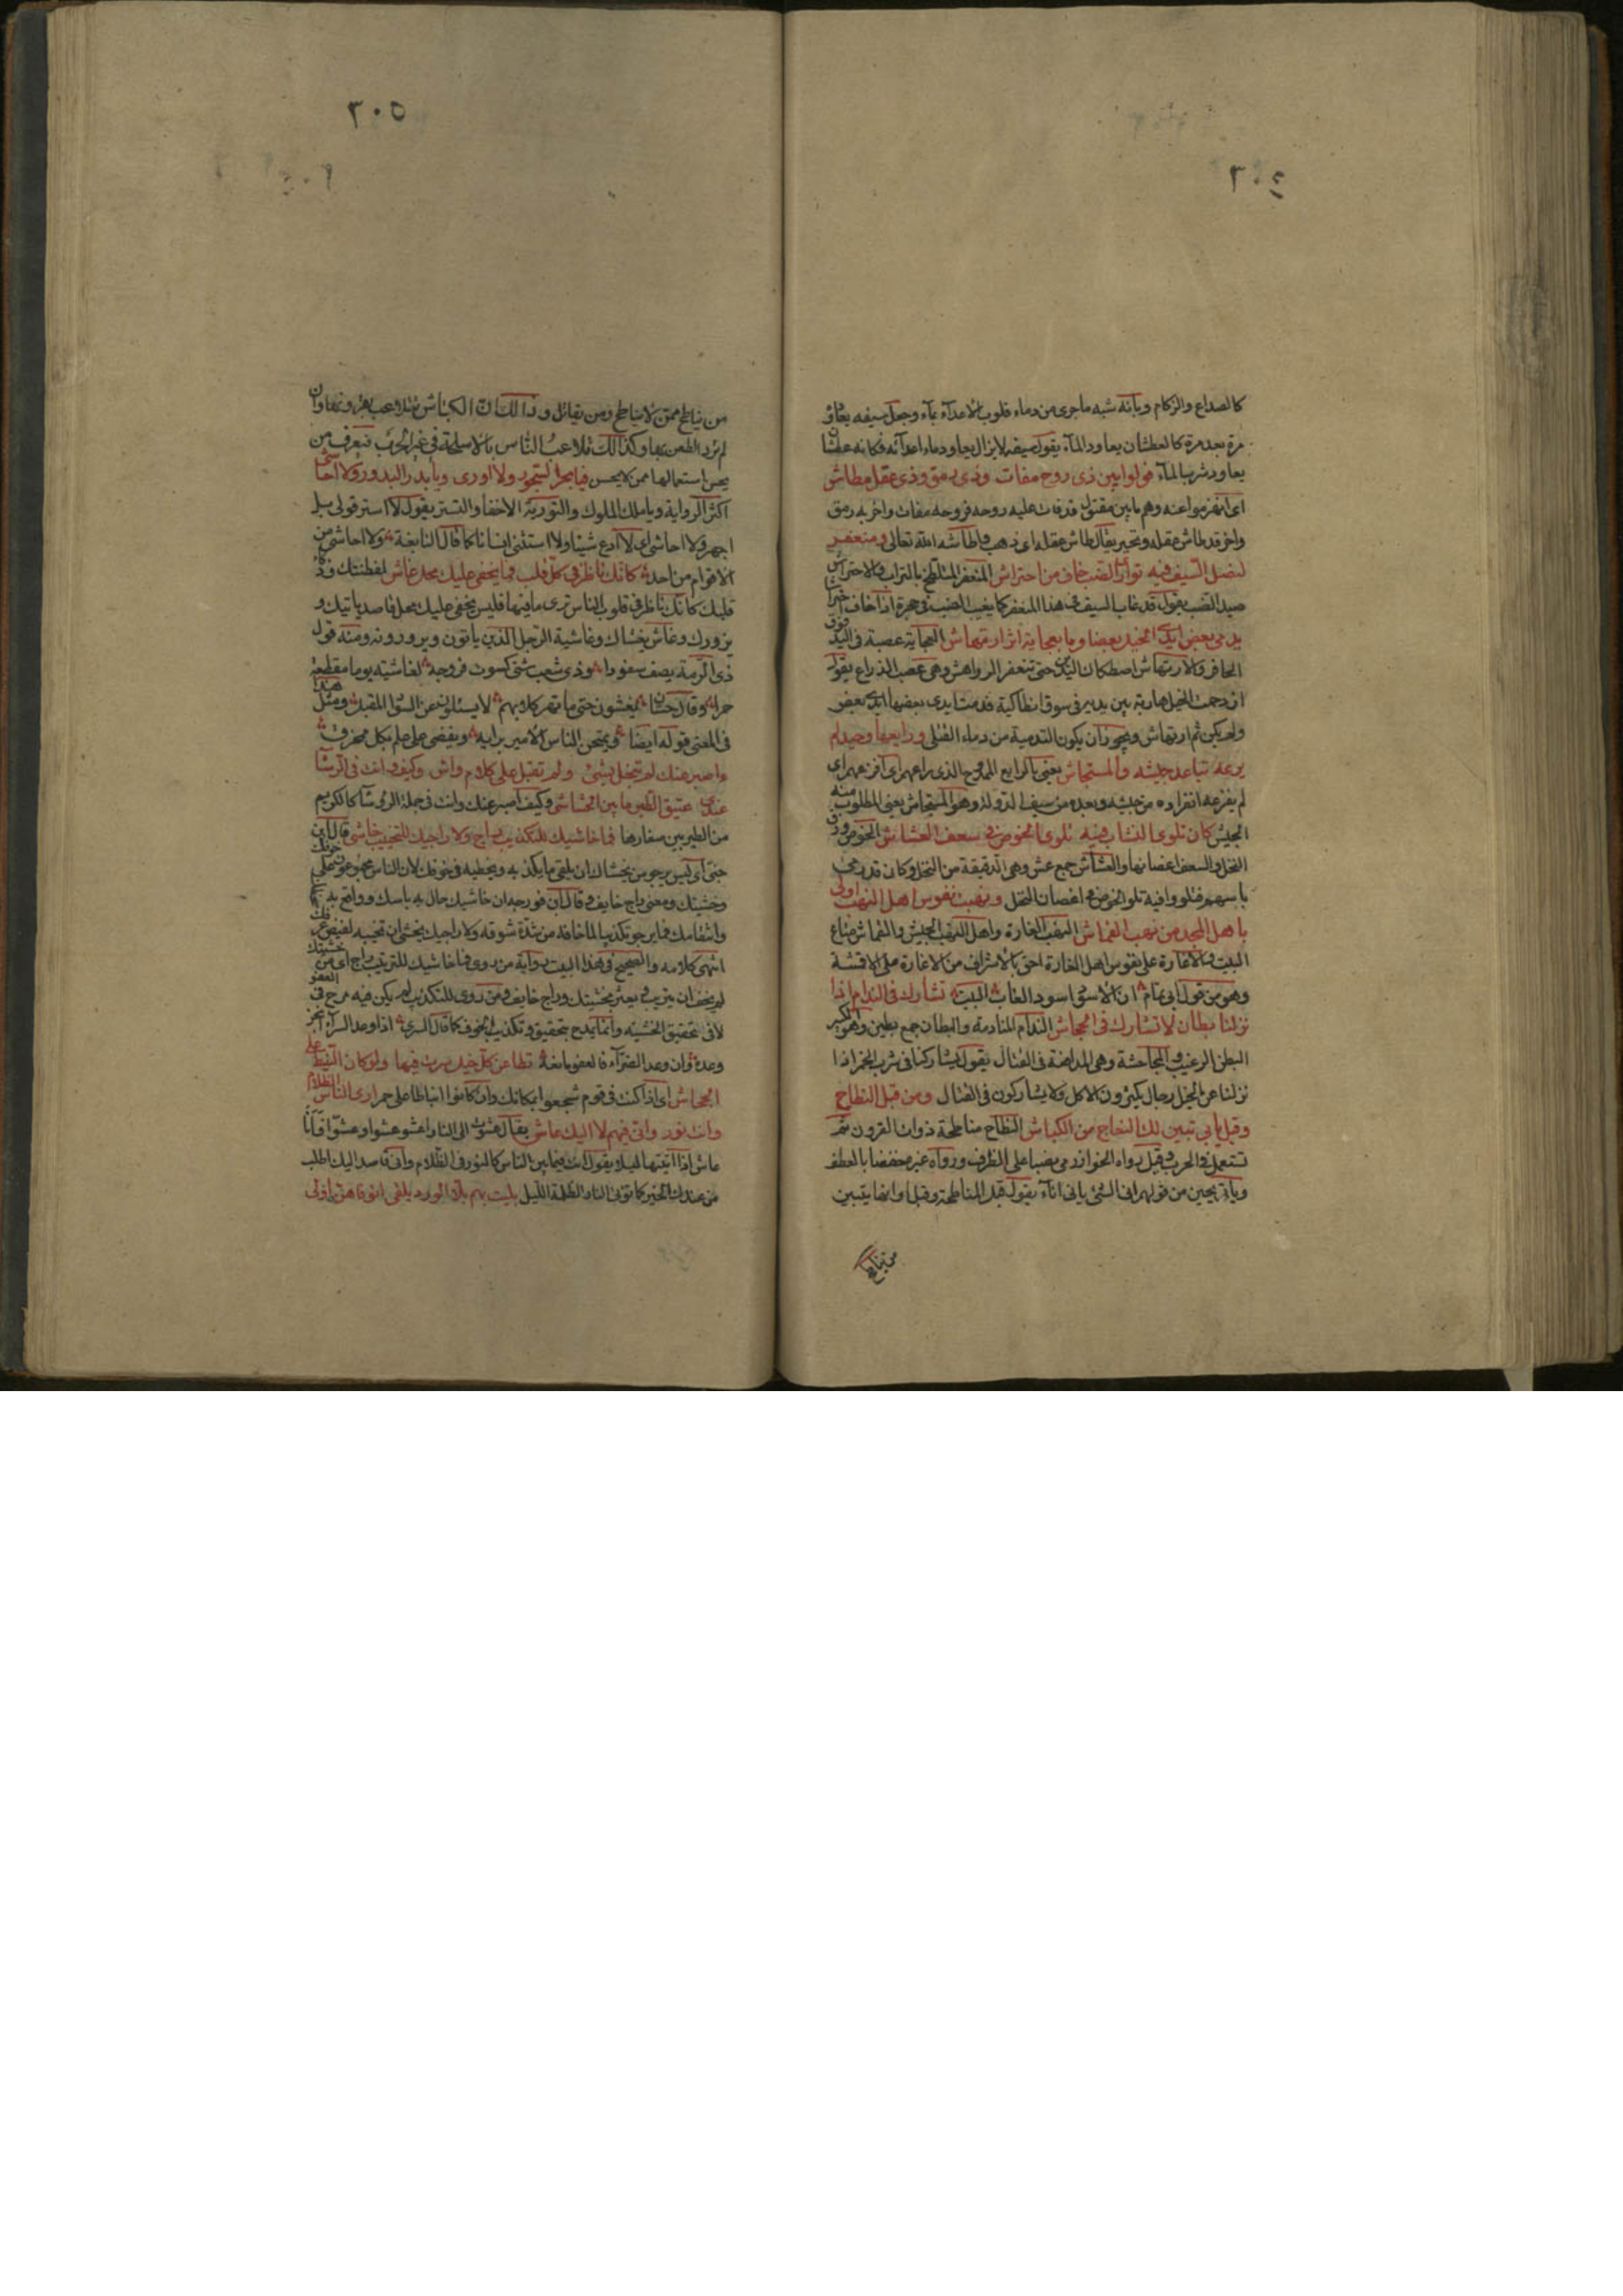 ٣٠٤
كالصداع والزكام وبانه شبه ماجرى من دماء قلوب الاعداء بماء وجعل سيفه يعاود
مرة بعد مرة كالعطشان يعاود الماء يقول سيفه لا يزال يعاود دماء اعدائه فكانه عطشان
يعاود شرب الماء فولوا بين ذى روح مفات وذى رمق وذى عقل مطاش
اى انهزموا عنه وهم ما بين مقتول قد فات عليه روحه فروحه مفات واخر به رمق
واخر قد طاش عقله وتحير يقال طاش عقله اى ذهب واطاشه الله تعالى ومنعفر
لنصل السيف فيه توارى الضب خاف من احتراش المنعفر المتلطخ بالتراب والاحتراش
صيد الضب يقول قد غاب السيف فى هذا المنعفر كما يغيب الضب فى جحره اذا خاف احتراشا
يدمى بعض ايدى الخيل بعضا وما بعجاية اثر ارتهاش العجاية عصبة فى اليد فوق
الحافر والارتهاش اصطكاك اليدين حتى تنعقر الرواهش وهى عصب الذراع يقول
ازدحمت الخيل هاربة بين يديه فى سوق انطاكية فدمت ايدى بعضها ايدى بعض
ولم يكن ثم ارتهاش ويجوز ان يكون التدمية من دماء القتلى ورايعها وحيد لم
يرعه تباعد جيشه والمستجاش يعنى بالرايع الممدوح الذى راعهم اى افزعهم اى
لم يفزعه انفراده من جيشه وبعده من سيف الدولة وهو المستجاش يعنى المطلوب منه
الجيش كان تلوى النشاب فيه تلوى الخوص فى سعف العشاش الخوص ورق
النخل والسعف اغصانها والعشاش جمع عش وهى الدقيقة من النخل وكان قد رمى
باسهم فتلو وافيه تلو الخوص فى اغصان النخل ونهب نفوس اهل النهب اولى
باهل المجد من نهب القماش النهب الغارة واهل النهب الجيش والقماش متاع
البيت والاغارة على نفوس اهل الغارة احق بالاشراف من الاغارة على الاقمشة
وهو من قول ابى تمام ان الاسود اسود الغاب البيت تشارك فى الندام اذا
نزلنا بطان لا تشارك فى الجحاش الندام المنادمة والبطان جمع بطين وهو الكبير
البطن الرغيب والمجاحشة وهى المدافعة فى القتال يقول يشاركنا فى شرب الخمر اذا
نزلنا عن الخيل رجال يكثرون الاكل ولا يشاركون فى القتال ومن قبل النطاح
وقبل يانى تبين لك النعاج من الكباش النطاح مناطحة ذوات القرون ثم
تستعمل فى الحرب وقبل رواه الخوارزمى نصبا على الظرف ورواه غيره خفضا بالعطف
ويانى يحين من قولهم انى الشئ يانى اناء يقول قبل المناطحة وقبل اوانها يتبين
من يناطح
٣٠٥
من يناطح ممن لا يناطح ومن يقاتل وذالك ان الكباش تتلاعب بقرونها وان
لم ترد الطعن بها وكذالك تلاعب الناس بالاسلحة فى غير الحرب فيعرف من
يحسن استعمالها ممن لا يحسن فيا بحر البحور ولا اورى ويا بدر البدور ولا احاشى
اكثر الرواية ويا ملك الملوك والتورية الاخفا والتستر يقول لا استر قولى بل
اجهر ولا احاشى اى لا ادع شيئا ولا استثنى انسانا كما قال النابغة ولا احاشى من
الاقوام من احد كانك ناظر فى كل قلب فما يخفى عليك محل غاش لفطنتك وذكا
قلبك كانك ناظر فى قلوب الناس ترى ما فيها فليس يخفى عليك محل قاصد ياتيك و
يزورك وغاش يغشاك وغاشية الرجل الذين ياتون ويزورونه ومنه قول
ذى الرمة يصف سفودا وذى شعب شتى كسوت فروجه لغاشية يوما مقطعة
حمرا وقال حسان يغشون حتى ما تهر كلابهم لا يسئلون عن السواد المقبل ومثل هذا
فى المعنى قوله ايضا ويمتحن الناس الامير برايه ويغضى على علم بكل ممخرق
ااصبر عنك لم تبخل بشئ ولم تقبل على كلام واش وكيف وانت فى الرؤسا
عندى عتيق الطير ما بين الخشاش وكيف اصبر عنك وانت فى جملة الرؤسا كالكريم
من الطير بين صغارها فما خاشيك للتكذيب راج ولا راجيك للتخييب خاشى قال ابن
جنى اى ليس يرجو من يخشاك ان يلقى ما يكذبه ويخطيه فى خوفك لان الناس مجموعون على خوفك
وخشيتك ومعنى راج خايف وقال ابن فورجه ان خاشيك حال به باسك وواقع به
وانتقامك فما يرجو تكذيبا لما خافه من شدة شوقه ولا راجيك يخشى ان تخيبه لفيض عرفك
انتهى كلامه والصحيح فى هذا البيت رواية من روى فما خاشيك للتثريب راج اى من خشيتك
لم يخف ان يثرب ويعير بخشيتك وراج خايف ومن روى للتكذيب لم يكن فيه مدح فى العفو
لافى تحقيق الخشية وانما يمدح بتحقيق وتكذيب الخوف كما قال السرى اذا وعد السراء انجز
وعده وان وعد الضراء فالعفو مانعه تطاعن كل خيل سرت فيها ولو كان النبيط على
الجحاش اى اذا كنت فى قوم شجعوا بمكانك وان كانوا انباطا على حمر ارى الناس الظلام
وانت نور وانى فيهم لا اليك عاش يقال عشوت الى النار اعشو عشوا وعشوا فانا
عاش اذا اتيتها ليلا يقول انت فيما بين الناس كالنور فى الظلام وانى قاصد اليك اطلب
من عندك الخير كما توتى النار الظلمة الليل بليت بهم بلاء الورد يلقى انوفا هن اولى